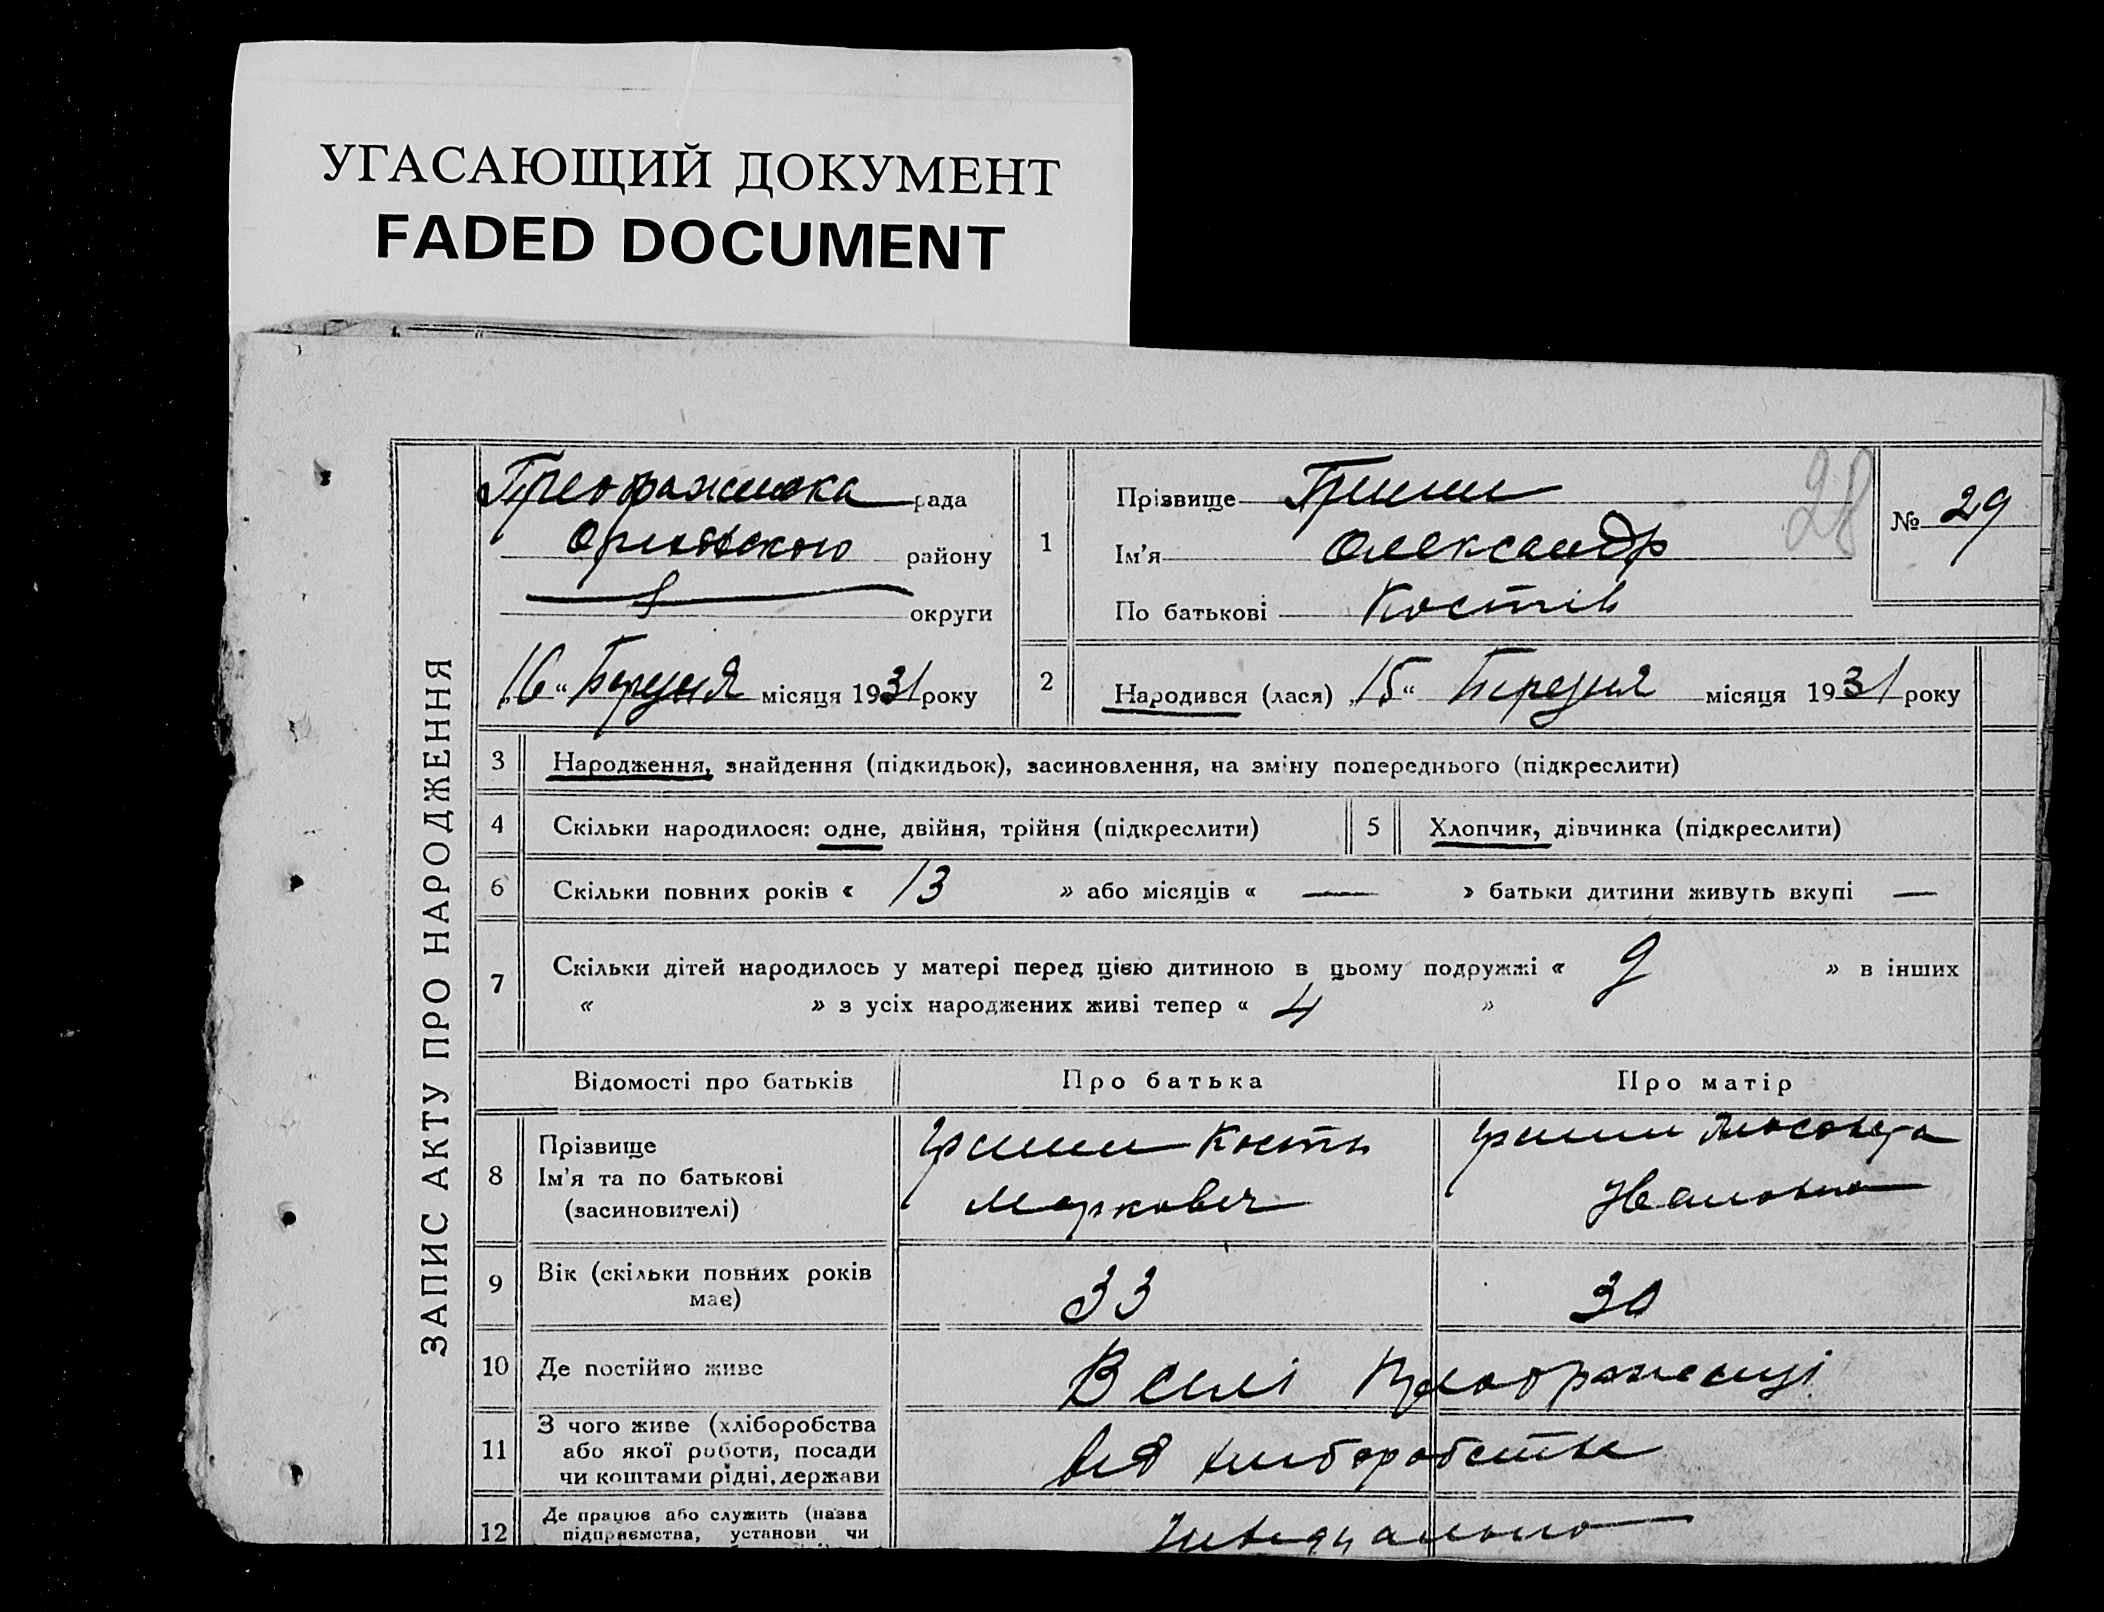 УГАСАЮЩИЙ ДОКУМЕНТ
FADED DOCUMENT
ЗАПИС АКТУ ПРО НАРОДЖЕННЯ
Преображенска рада
Оріхівского району
округи
„16“ Березня місяця 1931 року
1
Прізвище Гришин
Ім'я Олександр
По батькові Костів
28
№ 29
2
Народився (лася) „15“ Березня місяця 1931 року
3 Народження, знайдення (підкидьок), засиновлення, на зміну попереднього (підкреслити)
4 Скільки народилося: одне, двійня, трійня (підкреслити) 5 Хлопчик, дівчинка (підкреслити)
6 Скільки повних років « 13 » або місяців « — » батьки дитини живуть вкупі —
7 Скільки дітей народилось у матері перед цією дитиною в цьому подружжі « 9 » в інших
« » з усіх народжених живі тепер « 4 »
Відомості про батьків Про батька Про матір
8
Прізвище
Ім'я та по батькові
(засиновителі)
Гришин Кость
Маркович
Гришин
Івановна
9
Вік (скільки повних років
має)
33
30
10 Де постійно живе В селі Преображенці
11
З чого живе (хліборобства
або якої роботи, посади
чи коштами рідні, держави
від хліборобства
12
Де працює або служить (назва
підприємства, установи чи